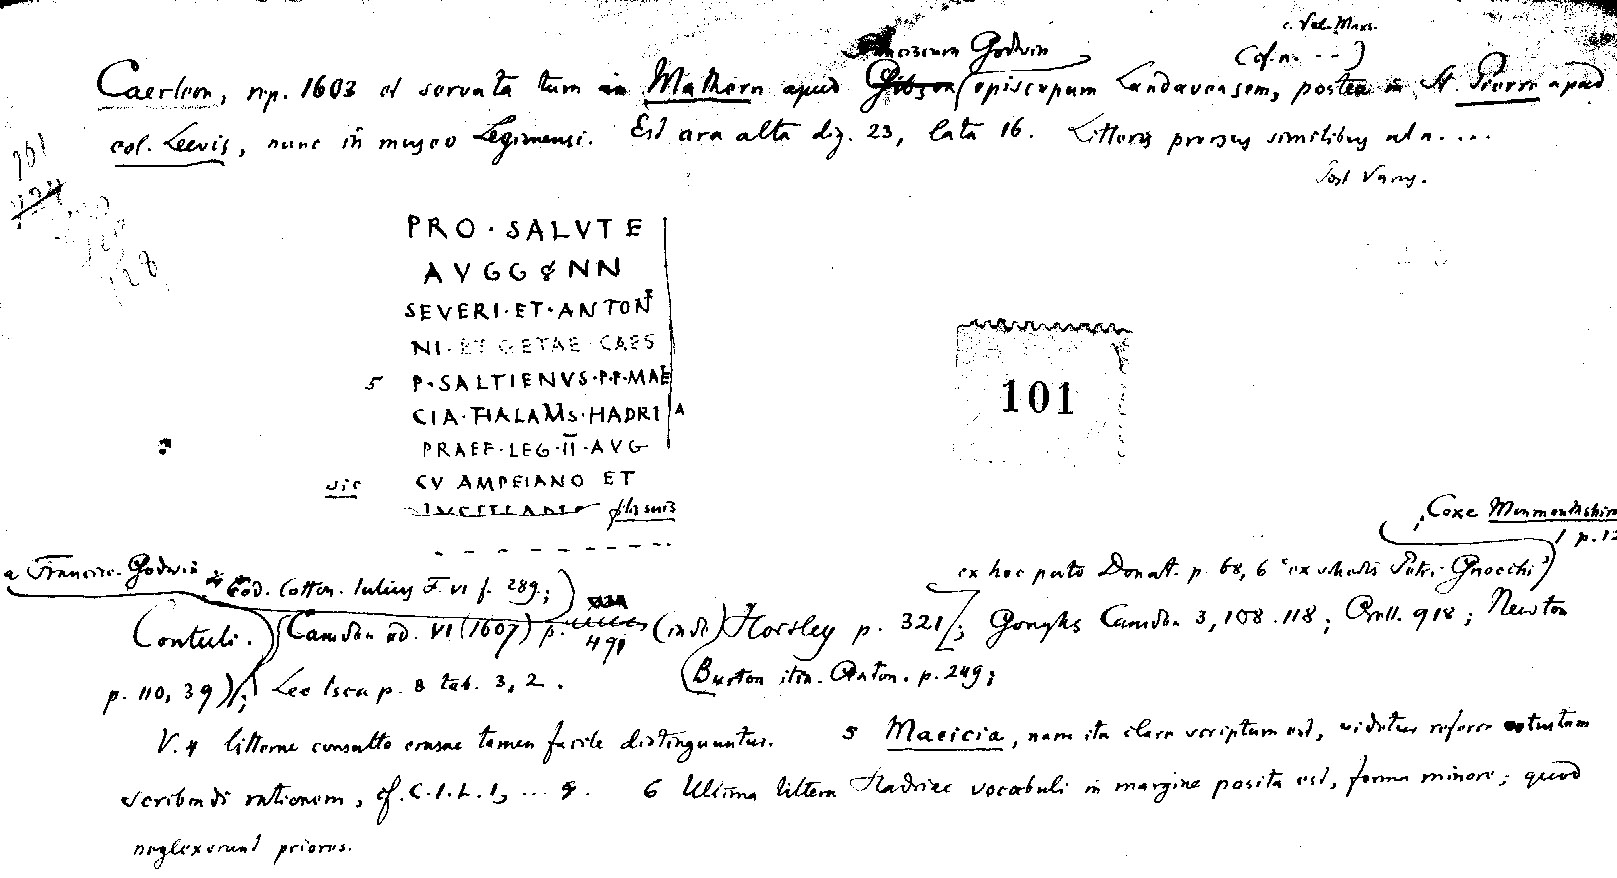 c. Val. Max.
Franciscum Godwin (cf. n. ---)
Caerleon, rep. 1603 et servata tum in Mathern apud Gibson episcopum Landavensem, postea in St. Pierre apud
col. Leevis, nunc in museo Legionensi. Est ara alta dig. 23, lata 16. Litteris prorsus similibus ut n. ....
101
128
PRO · SALVTE
AVGG NN
SEVERI · ET · ANTONI
NI · ET GETAE · CAES
5 P · SALTIENVS · P · F · MAE
CIA · THALAMS · HADRI A
PRAEF · LEG · II · AVG
sic CV AMPEIANO ET
101
; Coxe Monmouthshire
1 p. 12
a Francisc. Godwin Cod. Cotton. Iulius F. VI f. 289; ex hoc puto Donat. p. 68, 6 "ex schedis Petri Gnocchi")
Contuli. (Camden ed. VI (1607) p. 491 (inde) Horsley p. 321; Goughs Camden 3, 108. 118; Orell. 918; Newton
p. 110, 39); Lee Isca p. 8 tab. 3, 2. (Burton itin. Anton. p. 249;
V. 4 litterae consulto erasae tamen facile distinguuntur. 5 Maeicia, nam ita clare scriptum est, videtur referre vetustam
scribendi rationem, cf. C. I. L. 1, ... 6 Ultima littera Hadriae vocabuli in margine posita est, forma minore; quod
neglexerunt priores.